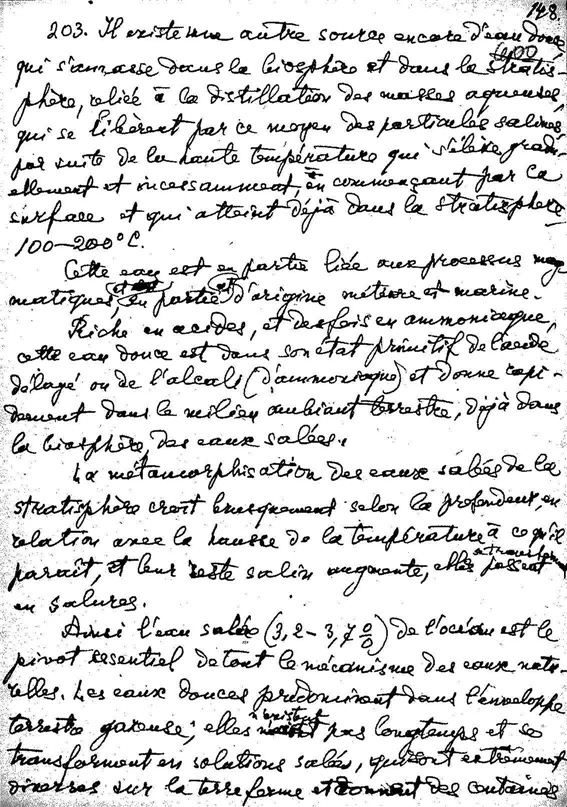 148.
203. Il existe une autre source encore d'eau douce
qui s'amasse dans la biosphère et dans la stratis-
phère, reliée à la distillation des masses aqueuses,
qui se libèrent par ce moyen des particules salines
par suite de la haute température qui s'élève gradu-
ellement et incessamment, en commençant par la
surface et qui atteint déjà dans la stratisphère
100–200°C.
Cette eau est en partie liée aux processus mag-
matiques, en partie d'origine météore et marine.
Riche en acides, et des fois en ammoniaque,
cette eau douce est dans son état primitif de l'acide
délayé ou de l'alcali (d'ammoniaque) et donne rapi-
dement dans le milieu ambiant terrestre, déjà dans
la biosphère, des eaux salées.
La métamorphisation des eaux salées de la
stratisphère croît brusquement selon la profondeur, en
relation avec la hausse de la température à ce qu'il
paraît, et leur reste salin augmente, elles passent
en salures.
Ainsi l'eau salée (3,2–3,7%) de l'océan est le
pivot essentiel de tout le mécanisme des eaux natu-
relles. Les eaux douces prédominent dans l'enveloppe
terrestre gazeuse; elles n'existent pas longtemps et se
transforment en solutions salées, qui sont extrêmement
diverses sur la terre ferme et donnent des centaines